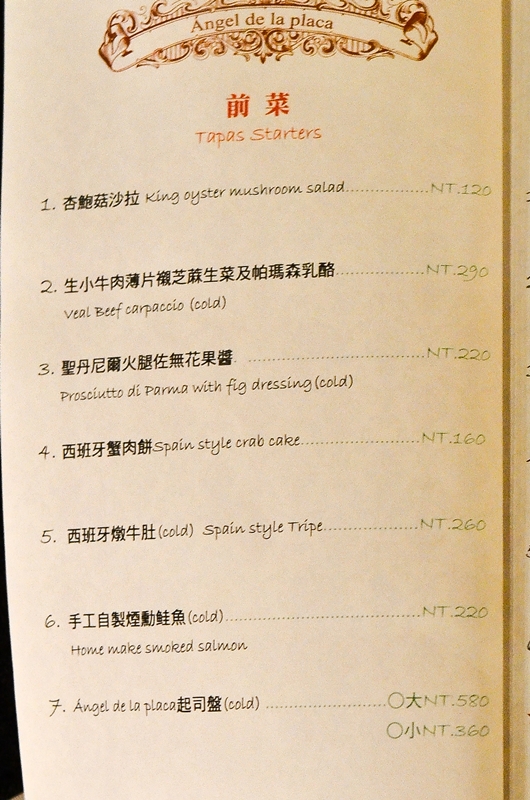 Ángel de la placa
前菜
Tapas Starters
1. 杏鮑菇沙拉 King oyster mushroom salad....................NT.120
2. 生小牛肉薄片襯芝蔴生菜及帕瑪森乳酪....................NT.290
Veal Beef carpaccio (cold)
3. 聖丹尼爾火腿佐無花果醬 ....................NT.220
Prosciutto di Parma with fig dressing(cold)
4. 西班牙蟹肉餅Spain style crab cake....................NT.160
5. 西班牙燉牛肚(cold) Spain style Tripe....................NT.260
6. 手工自製煙勳鮭魚(cold)....................NT.220
Home make smoked salmon
7. Ángel de la placa起司盤(cold) ....................○大NT.580
○小NT.360